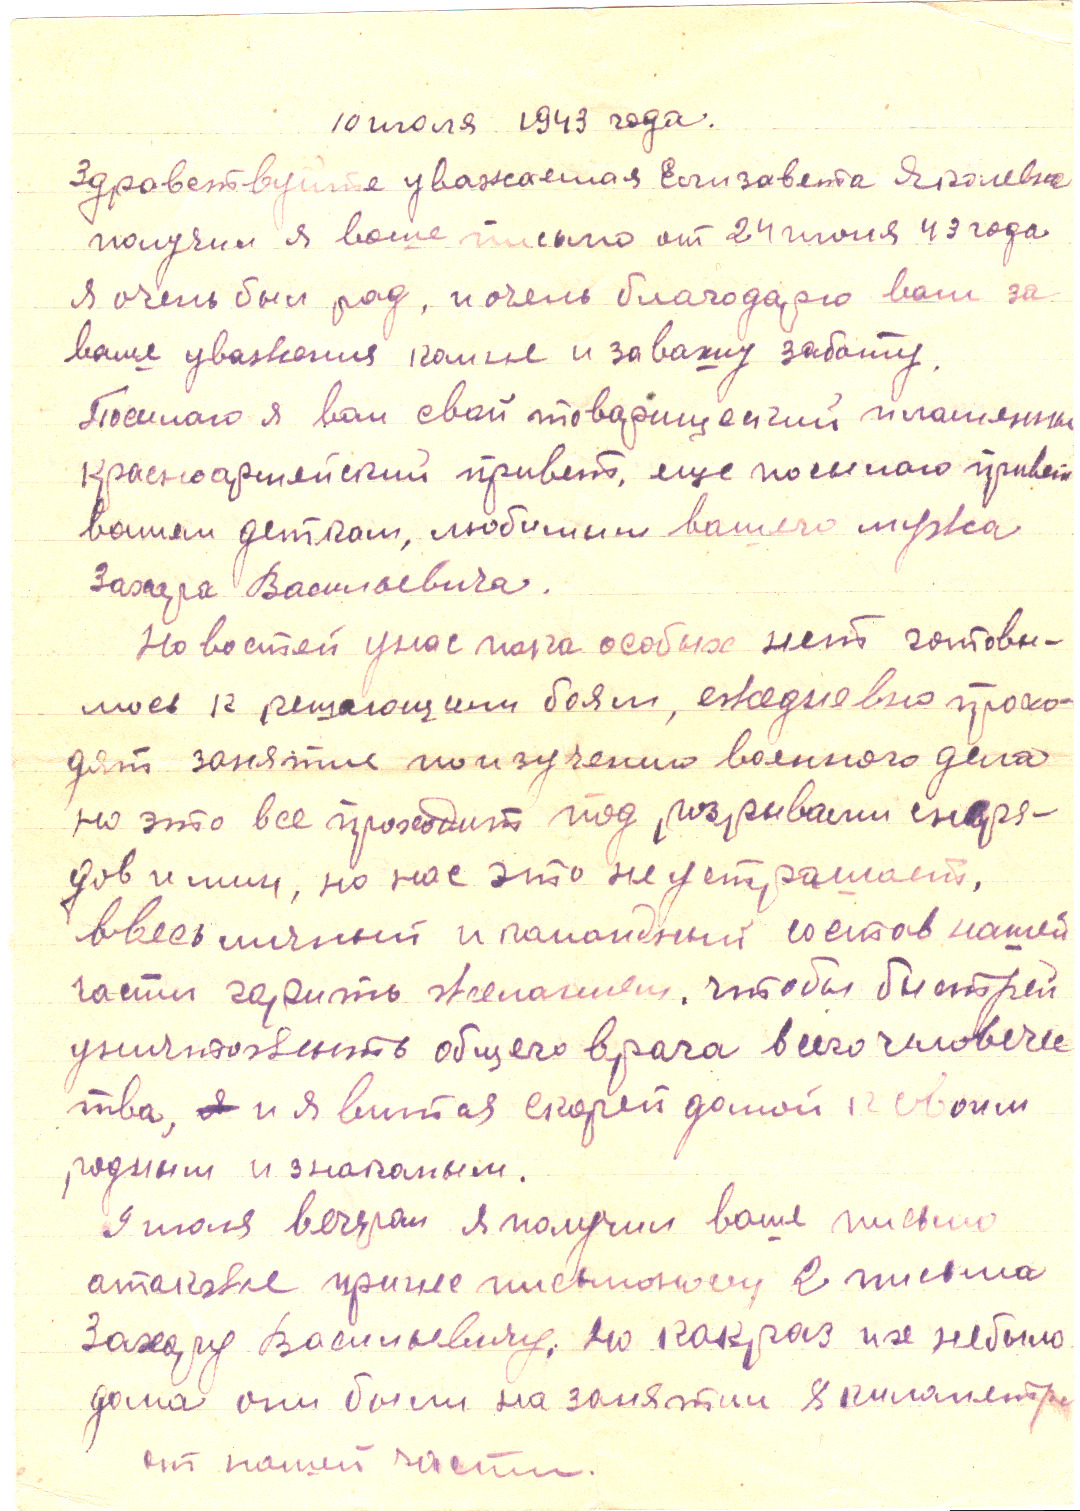 10 июля 1943 года.
Здравствуйте уважаемая Елизавета Яковлевна
получил я ваше письмо от 24 июня 43 года
я очень был рад, и очень благодарю вам за
ваше уважения комне и заважу заботу.
Посылаю я вам свой товарищеский пламенны
красноармейский привет, еще посылаю привет
вашем деткам, любимым вашего мужа
Захара Васильевича.
Новостей унас пока особых нет готовы-
мось к решающим боям, ежедневно прохо-
дят занятие поизучению военного дела
но это все проходит под розрывами снаря-
дов и мин, но нас это неустрашает,
ввесь личный и командный состав нашей
части горить желанием, чтобы быстрей
уничтожить общего врага всего человечес
тва, и явится скорей домой к своим
родным и знакомым.
9 июля вечером я получил ваше письмо
атакже принес письмоносец 2 письма
Захару Васильевичу, но какраз их небыло
дома они были на занятии 8 километре
от нашей части.